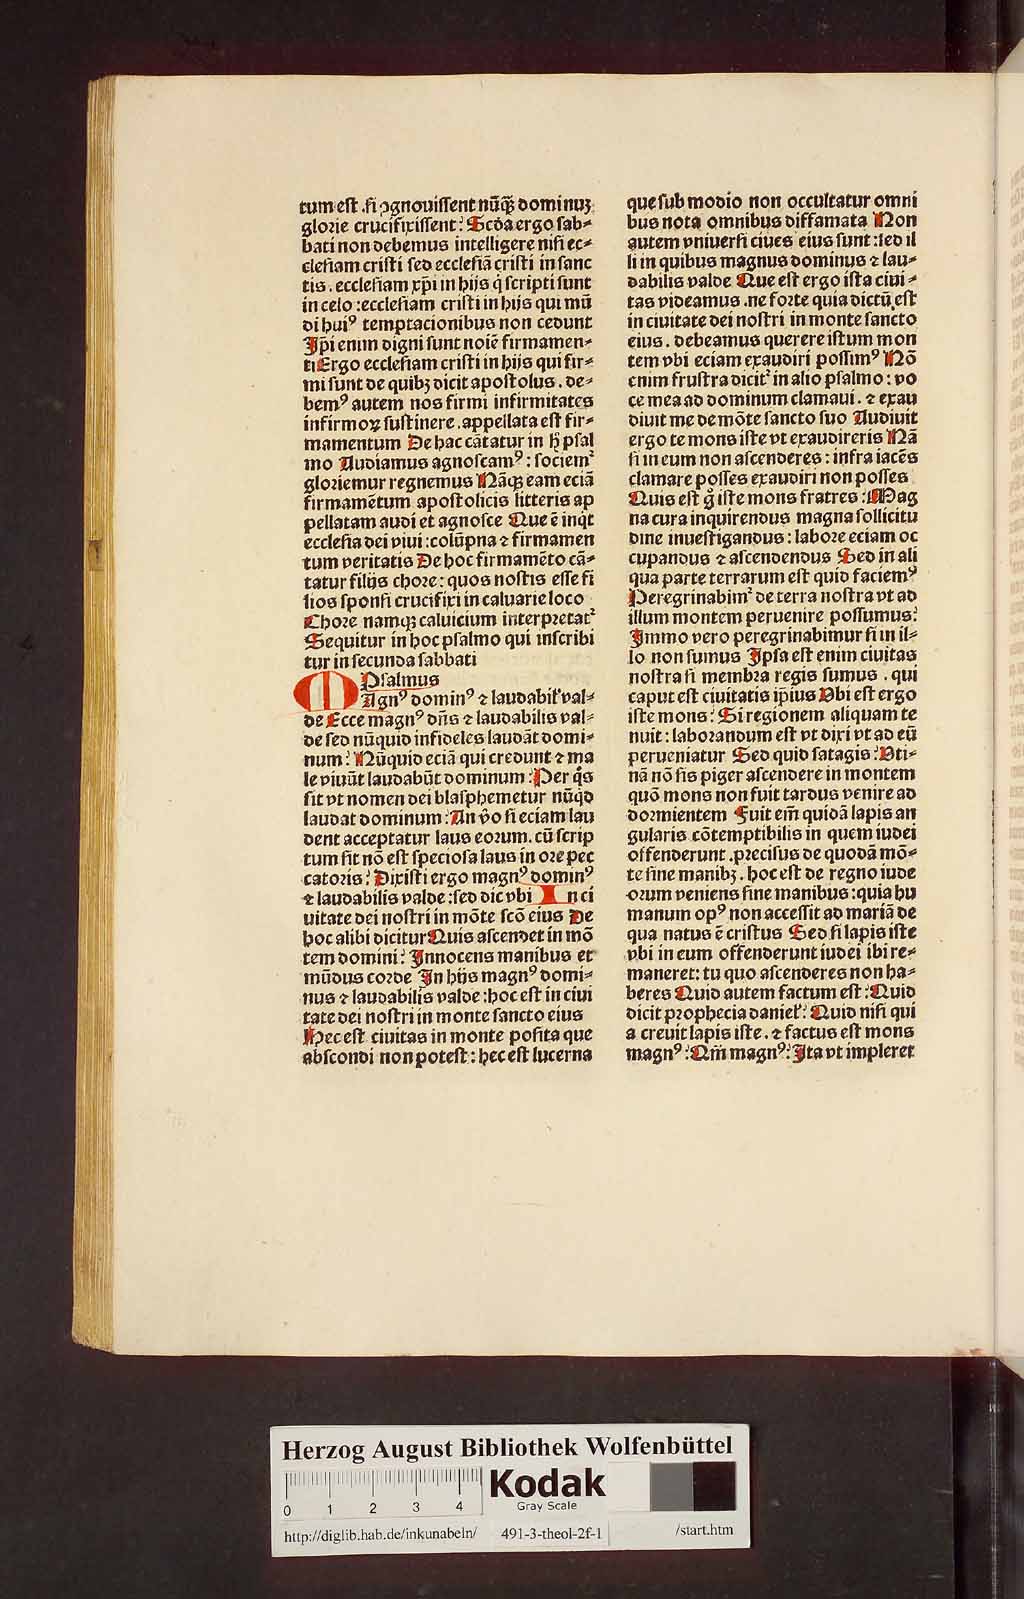 tum est .si ꝯgnouissent nūq̄ꝫ dominuꝫ
glorie crucifixissent? Scḋa ergo sab⸗
bati non debemus intelligere nisi ec⸗
clesiam cristi sed ecclesiā cristi in sanc
tis . ecclesiam xp̄i in hijs q̄ scripti sunt
in celo : ecclesiam cristi in hijs qui mū
di huiꝰ temptacionibus non cedunt
Ipi enim digni sunt noīe firmamen⸗
ti Ergo ecclesiam cristi in hijs qui fir⸗
mi sunt de quibꝫ dicit apostolus . de⸗
bemꝰ autem nos firmi infirmitates
infirmoꝝ sustinere . appellata est fir⸗
mamentum De hac cātatur in h̄ psal
mo Audiamus agnoscamꝰ : sociemᷣ
gloriemur regnemus Nāqꝫ eam eciā
firmamētum apostolicis litteris ap
pellatam audi et agnosce Que ē inq̇t
ecclesia dei viui : colūpna ⁊ firmamen
tum veritatis De hoc firmamēto cā⸗
tatur filijs chore : quos nostis esse fi
lios sponsi crucifixi in caluarie loco
Chore namqꝫ caluicium interpretatᷣ
Sequitur in hoc psalmo qui inscribi
tur in secunda sabbati
Psalmus
MAgnꝰ dominꝰ ⁊ laudabil̛ val⸗
de Ecce magnꝰ dn̄s ⁊ laudabilis val⸗
de sed nūquid infideles laudāt domi⸗
num? Nūquid eciā qui credunt ⁊ ma
le viuūt laudabūt dominum? Per q̊s
fit vt nomen dei blasphemetur nūq̇d
laudat dominum? An v̊o si eciam lau
dent acceptatur laus eorum . cū scrip
tum sit nō est speciosa laus in ore pec
catoris? Dixisti ergo magnꝰ dominꝰ
⁊ laudabilis valde : sed dic vbi In ci
uitate dei nostri in mōte scō eius De
hoc alibi dicitur Quis ascendet in mō
tem domini? Innocens manibus et
mūdus corde In hijs magnꝰ domi⸗
nus ⁊ laudabilis valde : hoc est in ciui
tate dei nostri in monte sancto eius
Hec est ciuitas in monte posita que
abscondi non potest : hec est lucerna
que sub modio non occultatur omni
bus nota omnibus diffamata Non
autem vniuersi ciues eius sunt : sed il
li in quibus magnus dominus ⁊ lau⸗
dabilis valde Que est ergo ista ciui⸗
tas videamus . ne forte quia dictū est
in ciuitate dei nostri in monte sancto
eius . debeamus querere istum mon
tem vbi eciam exaudiri possimꝰ Nō
enim frustra dicitᷣ in alio psalmo : vo
ce mea ad dominum clamaui . ⁊ exau
diuit me de mōte sancto suo Audiuit
ergo te mons iste vt exaudireris Nā
si in eum non ascenderes : infra iacēs
clamare posses exaudiri non posses
Quis est g̊ iste mons fratres? Mag
na cura inquirendus magna sollicitu
dine inuestigandus : labore eciam oc
cupandus ⁊ ascendendus Sed in ali
qua parte terrarum est quid faciemꝰ
Peregrinabimᷣ de terra nostra vt ad
illum montem peruenire possumus?
Immo vero peregrinabimur si in il⸗
lo non sumus Ipsa est enim ciuitas
nostra si membra regis sumus . qui
caput est ciuitatis ip̄ius Vbi est ergo
iste mons? Si regionem aliquam te
nuit : laborandum est vt dixi vt ad eū
perueniatur Sed quid satagis? Vti⸗
nā nō sis piger ascendere in montem
quō mons non fuit tardus venire ad
dormientem Fuit em̄ quidā lapis an
gularis cōtemptibilis in quem iudei
offenderunt . precisus de quodā mō⸗
te sine manibꝫ . hoc est de regno iude
orum veniens sine manibus : quia hu
manum opꝰ non accessit ad mariā de
qua natus ē cristus Sed si lapis iste
vbi in eum offenderunt iudei ibi re⸗
maneret : tu quo ascenderes non ha⸗
beres Quid autem factum est? Quid
dicit prophecia daniel̛? Quid nisi qui
a creuit lapis iste . ⁊ factus est mons
magnꝰ? Qm̄ magnꝰ? Ita vt impleret
Herzog August Bibliothek Wolfenbüttel
0 1 2 3 4
Kodak
Gray Scale
http://diglib.hab.de/inkunabeln/ 491-3-theol-2f-1 /start.htm